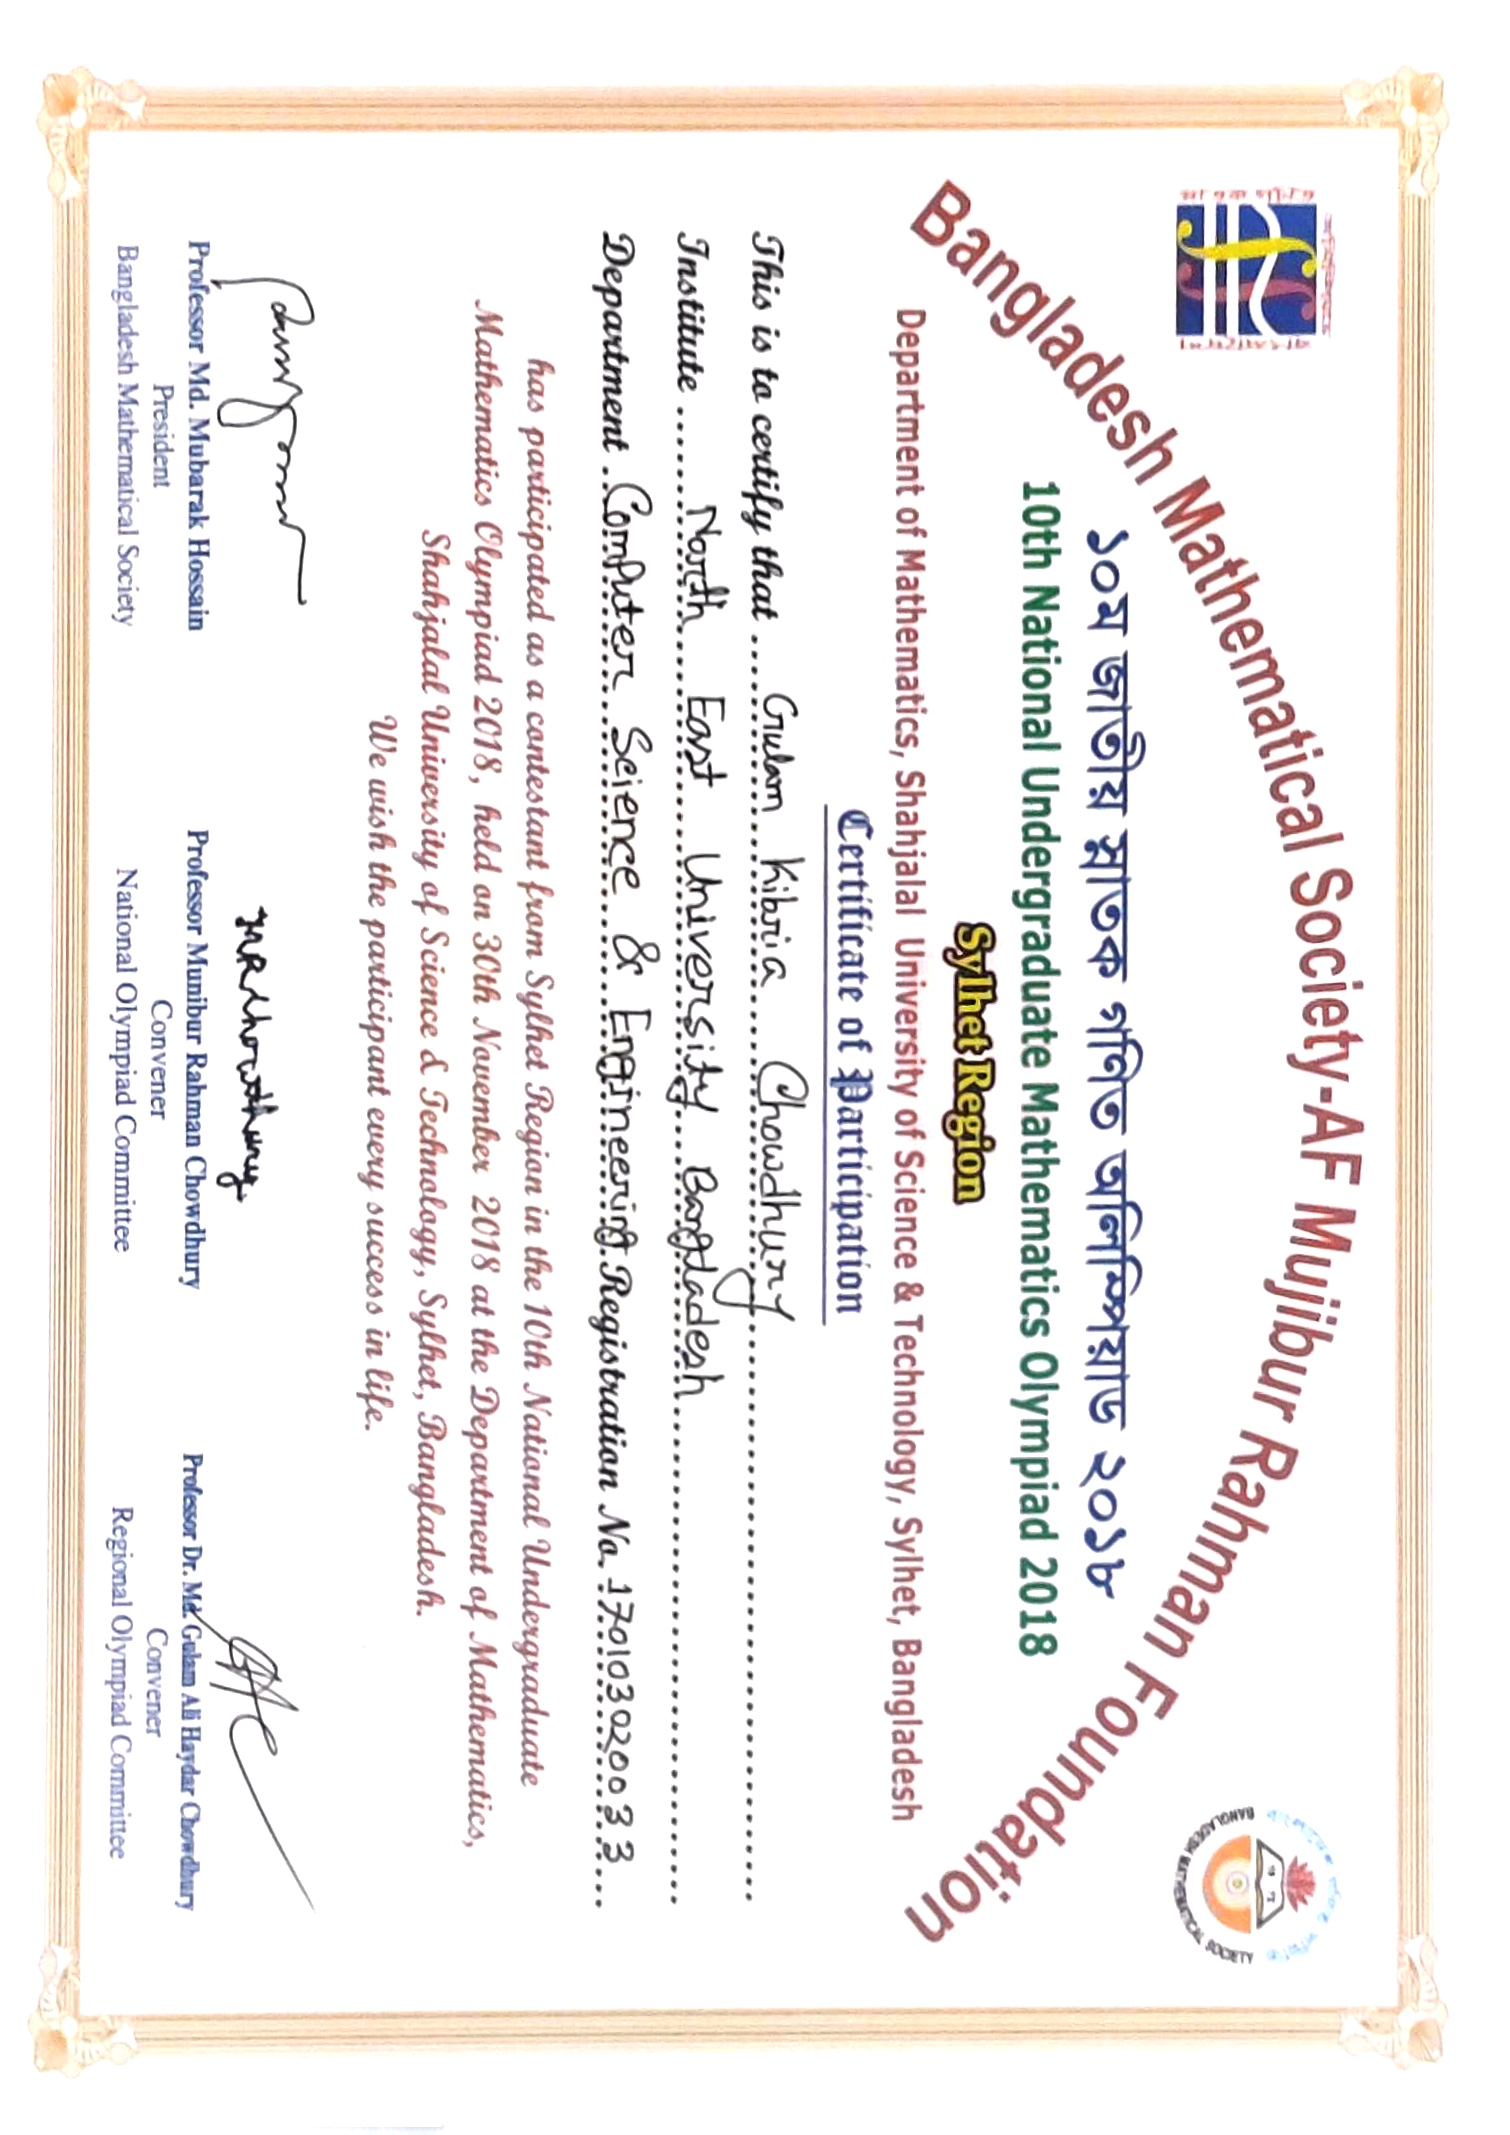 Bangladesh Mathematical Society-AF Mujibur Rahman Foundation
১০ম জাতীয় স্নাতক গণিত অলিম্পিয়াড ২০১৮
10th National Undergraduate Mathematics Olympiad 2018
Sylhet Region
Department of Mathematics, Shahjalal University of Science & Technology, Sylhet, Bangladesh
Certificate of Participation
This is to certify that .... Gulam Kibria Chowdhury
Institute ...... North East University Bangladesh
Department . Computer Science & Engineering. Registration No. 170103020033...
has participated as a contestant from Sylhet Region in the 10th National Undergraduate
Mathematics Olympiad 2018, held on 30th November 2018 at the Department of Mathematics,
Shahjalal University of Science & Technology, Sylhet, Bangladesh.
We wish the participant every success in life.
MRChowdhury
Professor Md. Mubarak Hossain
President
Bangladesh Mathematical Society
Professor Munibur Rahman Chowdhury
Convener
National Olympiad Committee
Professor Dr. Md. Gulam Ali Haydar Chowdhury
Convener
Regional Olympiad Committee
BANGLADESH MATHEMATICAL SOCIETY